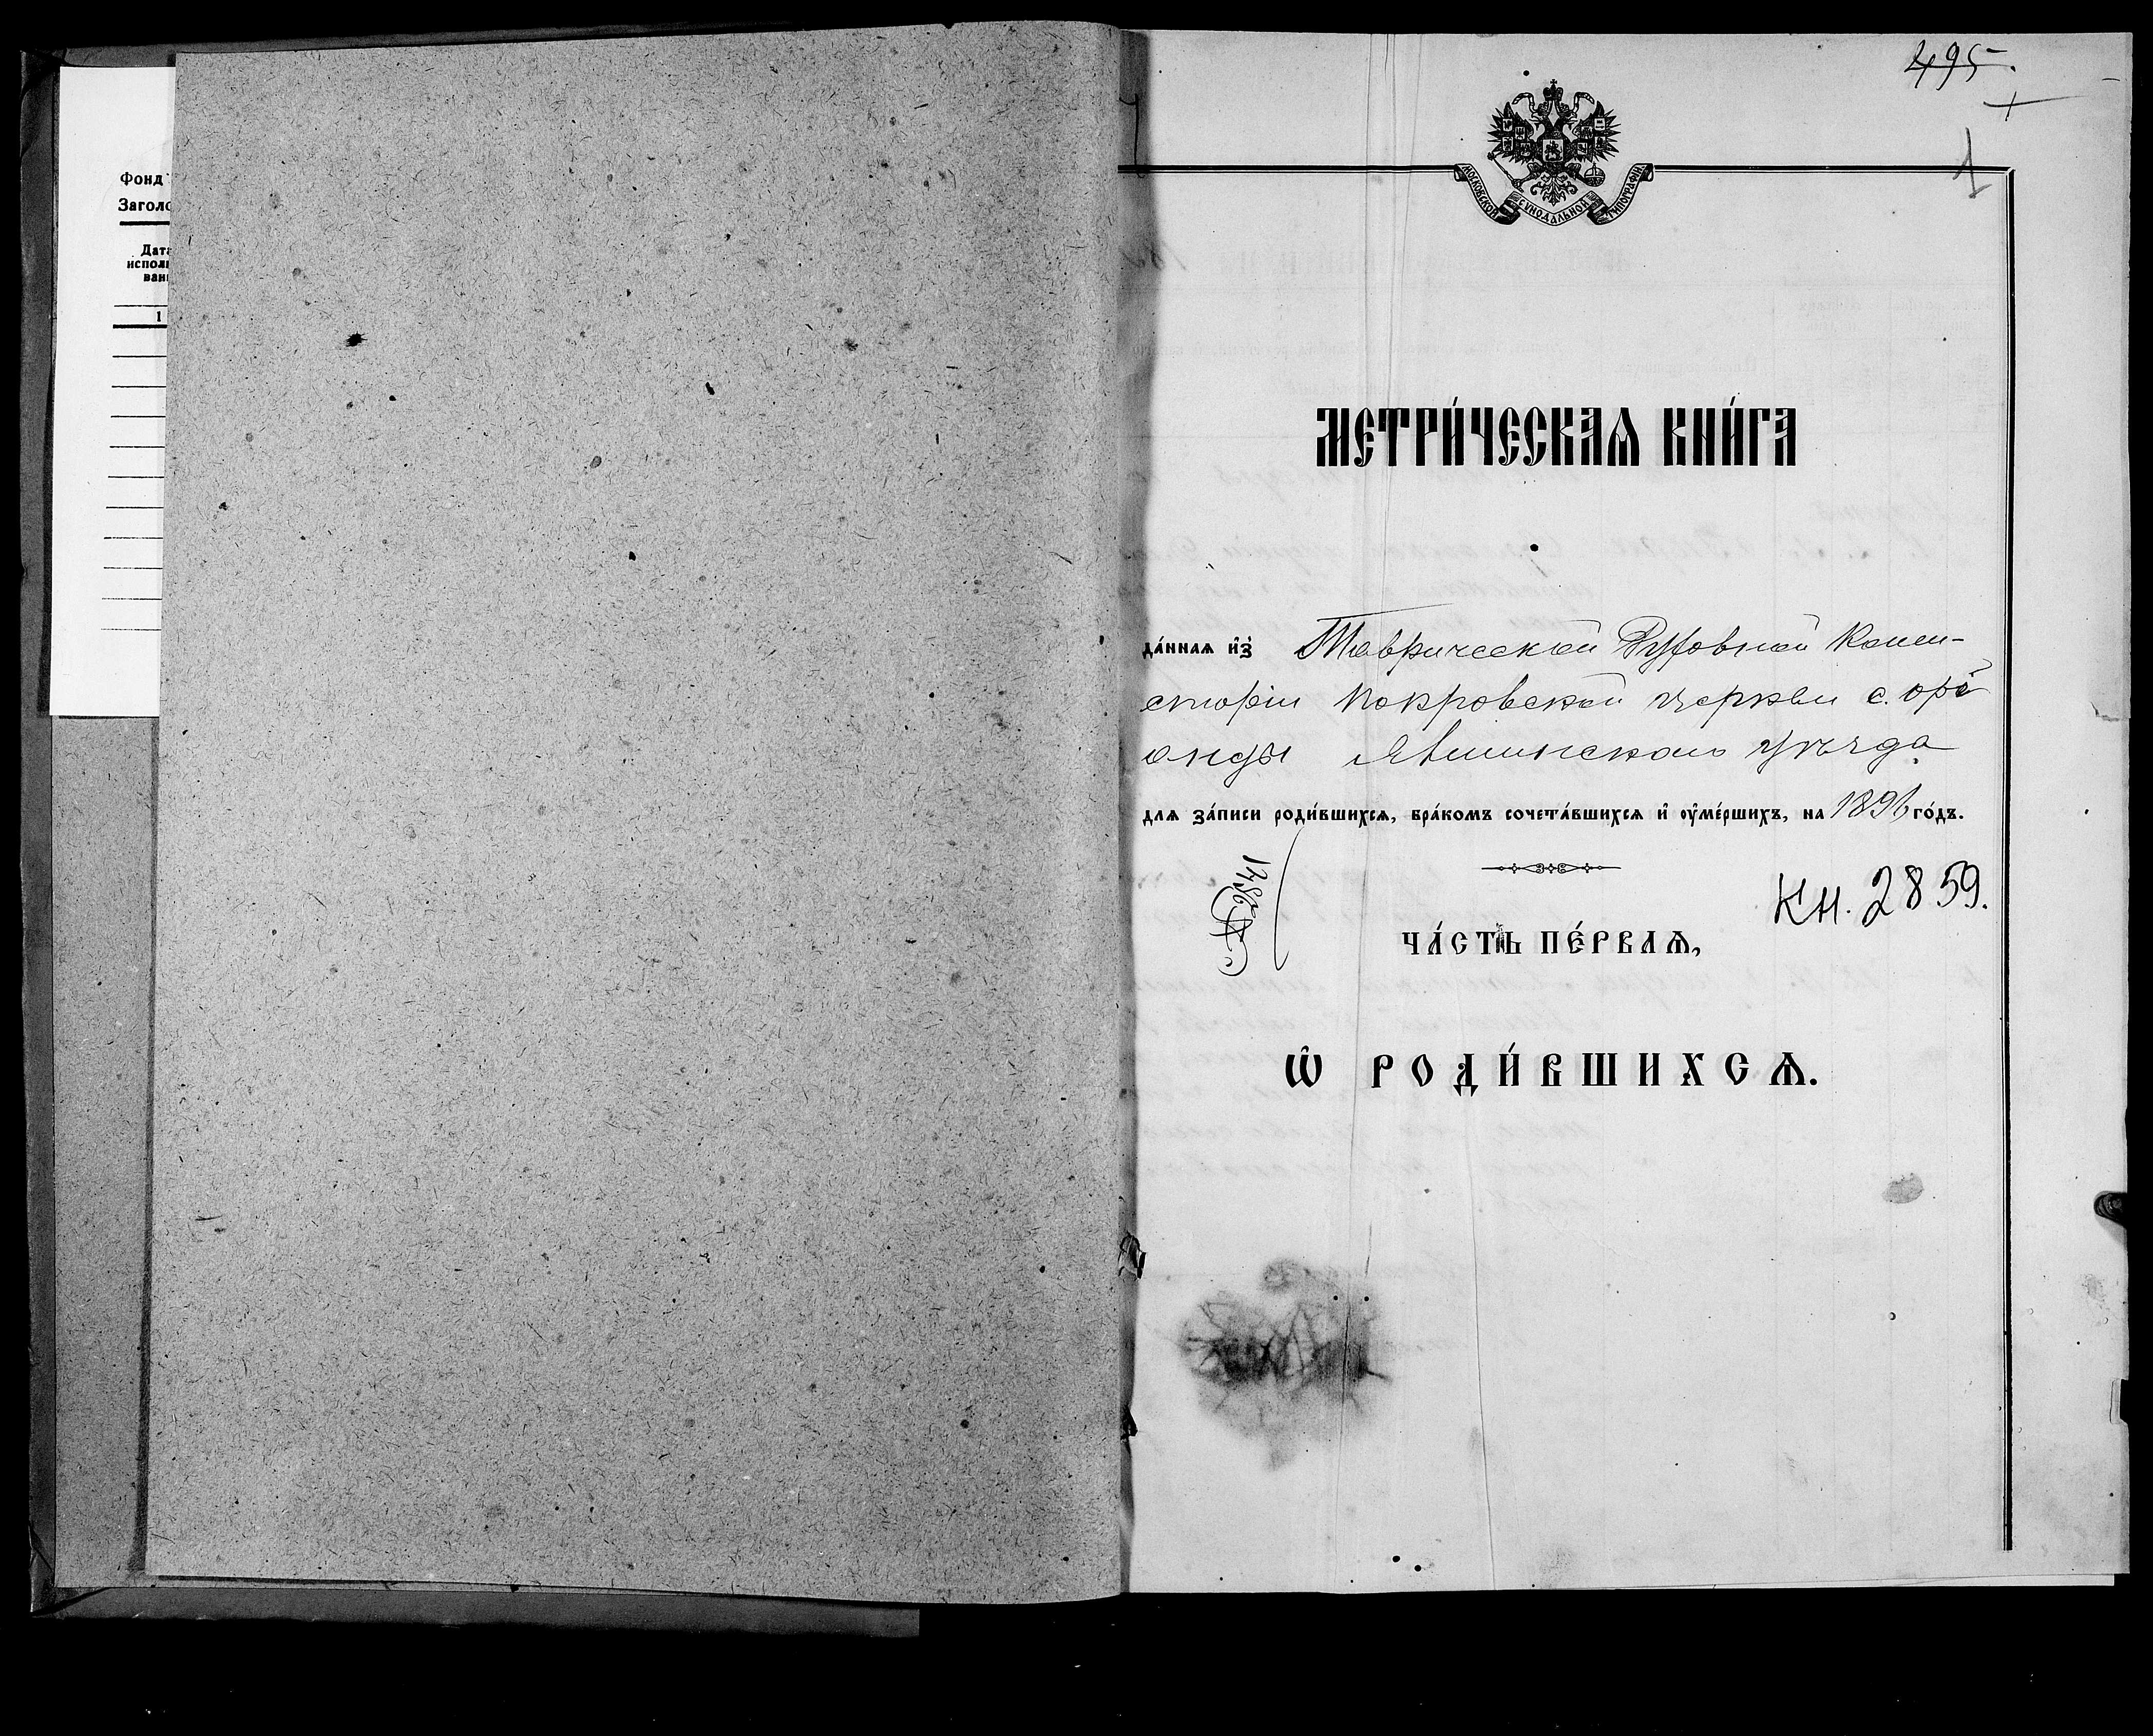 Фонд
Заголо
Дата
исполь
вани
1
495
1
МОСКОВСКОЙ СѴНОДАЛЬНОЙ ТИПОГРАФІИ
МЕТРИ́ЧЕСКАѦ КНИ́ГА
да́ннаѧ и҆з̾ Таврической Духовной Конси-
сторіи Покровской церкви с. Орі
анды Ялтинскаго уѣзда
для за́писи роди́вшихсѧ, бра́комъ сочета́вшихсѧ и҆ оу҆ме́ршихъ, на 1896 го́дъ.
Кн. 2859.
ЧА́СТЬ ПЕ́РВАѦ,
Ѡ҆ РОДИ́ВШИХСѦ.